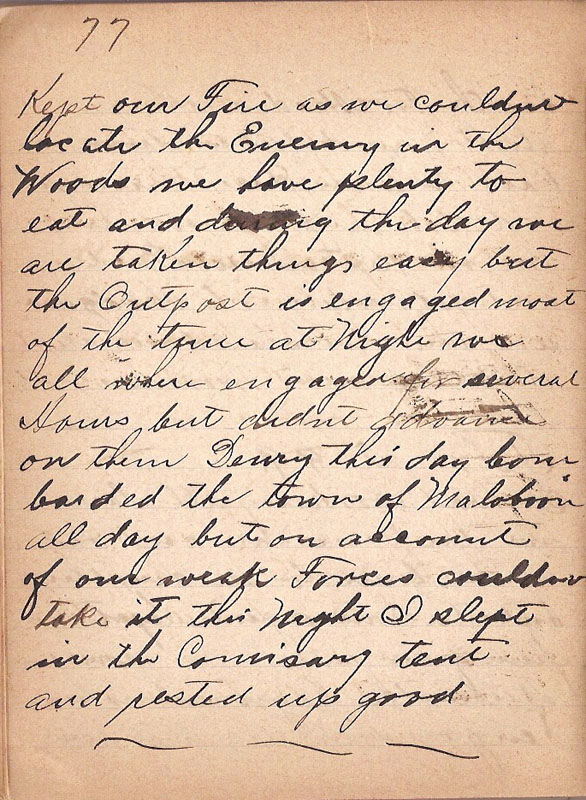 77
Kept our Fire as we couldnt
locate the Enemy in the
Woods we have plenty to
eat and during the day we
are taken things easy but
the Outpost is engaged most
of the time at Night we
all where engaged for several
Hours but didnt advance
on them Dewry this day bom
barded the town of Malobon
all day but on account
of our weak Forces couldnt
take it this Night I slept
in the Comisary tent
and rested up good